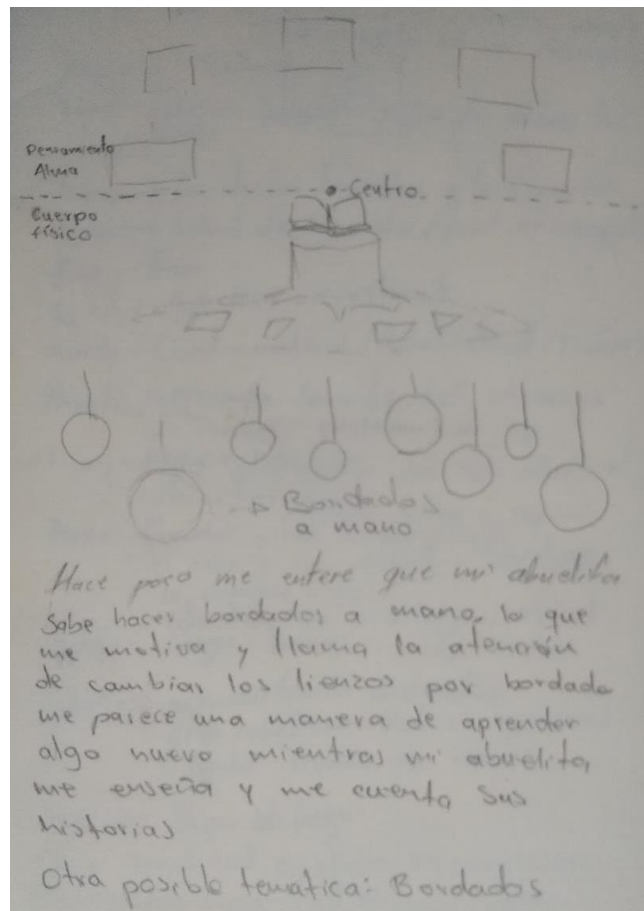 Pensamiento
Alma
Centro
Cuerpo
físico
Bordados
a mano
Hace poco me entere que mi abuelita
sabe hacer bordados a mano, lo que
me motiva y llama la atención
de cambiar los lienzos por bordado
me parece una manera de aprender
algo nuevo mientras mi abuelita
me enseña y me cuenta sus
historias
Otra posible temática: Bordados